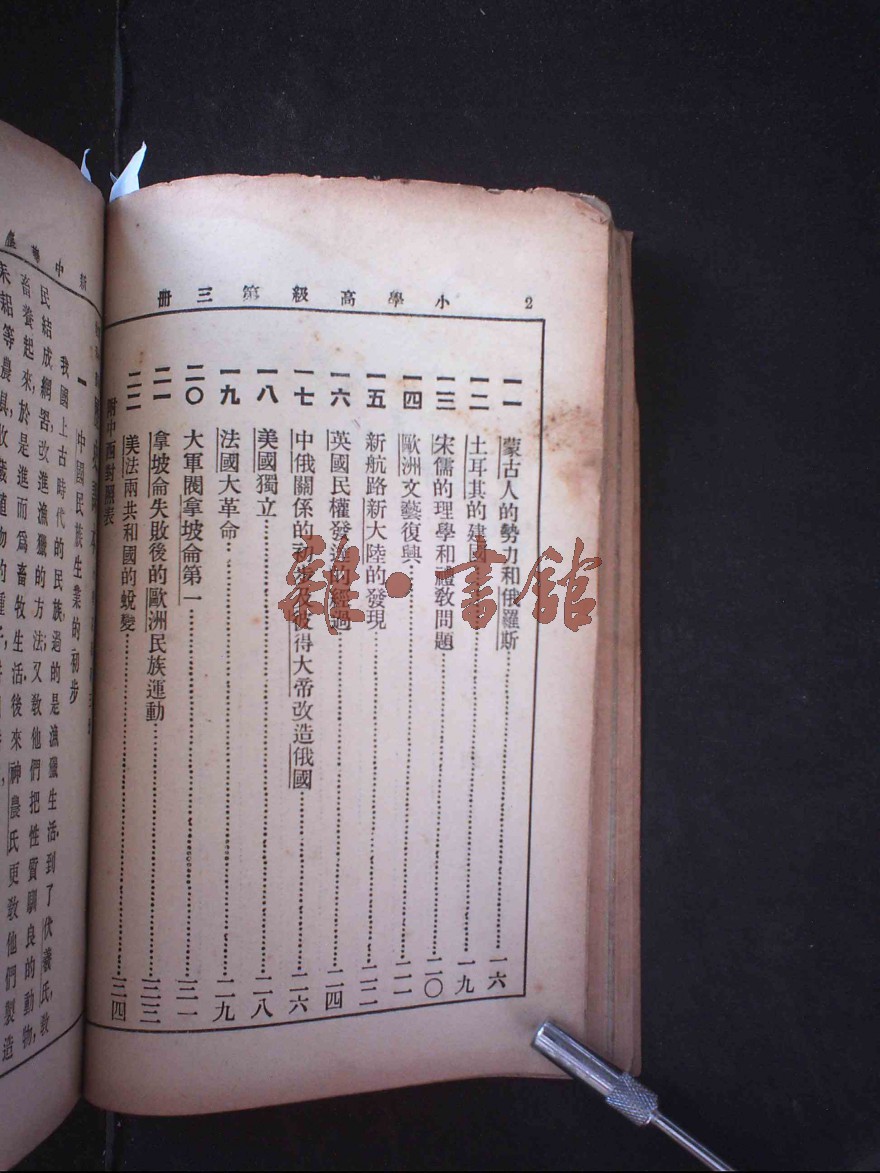 2
小學高級第三冊
一一 蒙古人的勢力和俄羅斯 一六
一二 土耳其的建國 一九
一三 宋儒的理學和禮敎問題 二〇
一四 歐洲文藝復興 二一
一五 新航路新大陸的發現 二二
一六 英國民權發達的經過 二四
一七 中俄關係的初步及彼得大帝改造俄國 二六
一八 美國獨立 二八
一九 法國大革命 二九
二〇 大軍閥拿坡侖第一 三一
二一 拿坡侖失敗後的歐洲民族運動 三三
二二 美法兩共和國的蛻變 三四
附中西對照表
雜·書館
新中學
一 中國民族生業的初步
我國上古時代的民族，過的是漁獵生活．到了伏羲氏，敎
民結成網罟，改進漁獵的方法；又敎他們把性質馴良的動物，
畜養起來，於是進而爲畜牧生活．後來神農氏更敎他們製造
耒耜等農具，收藏植物的種子